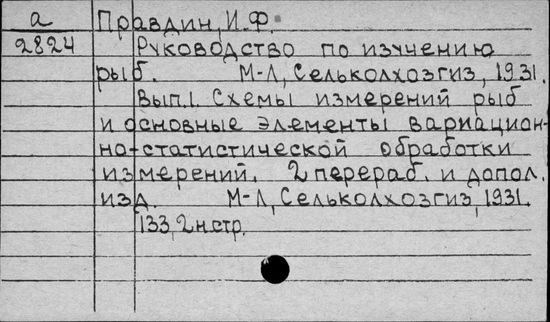 а Правдин, И.Ф.
2824 Руководство по изучению
рыб. М-Л, Сельколхозгиз, 1931.
Вып.1. Схемы измерений рыб
и основные элементы вариацион-
но-статистической обработки
измерений. 2 перераб. и допол.
изд. М-Л, Сельколхозгиз, 1931.
133, 2н.стр.